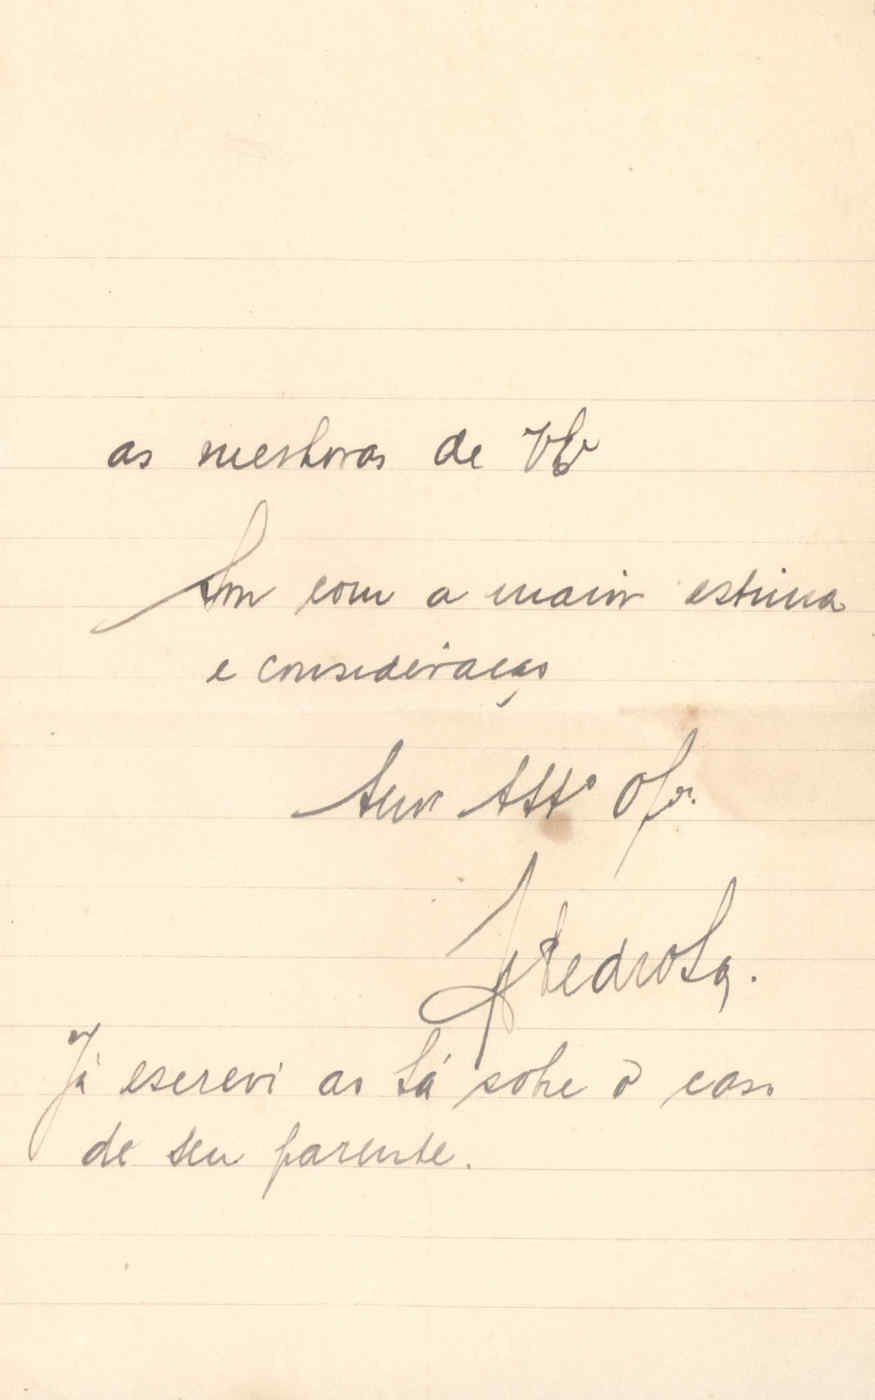 as melhoras de VEx
Sou com a maior estima
e consideração
Seu Attº
Pedrosa.
Já escrevi ao Sá sobre o caso
de seu parente.